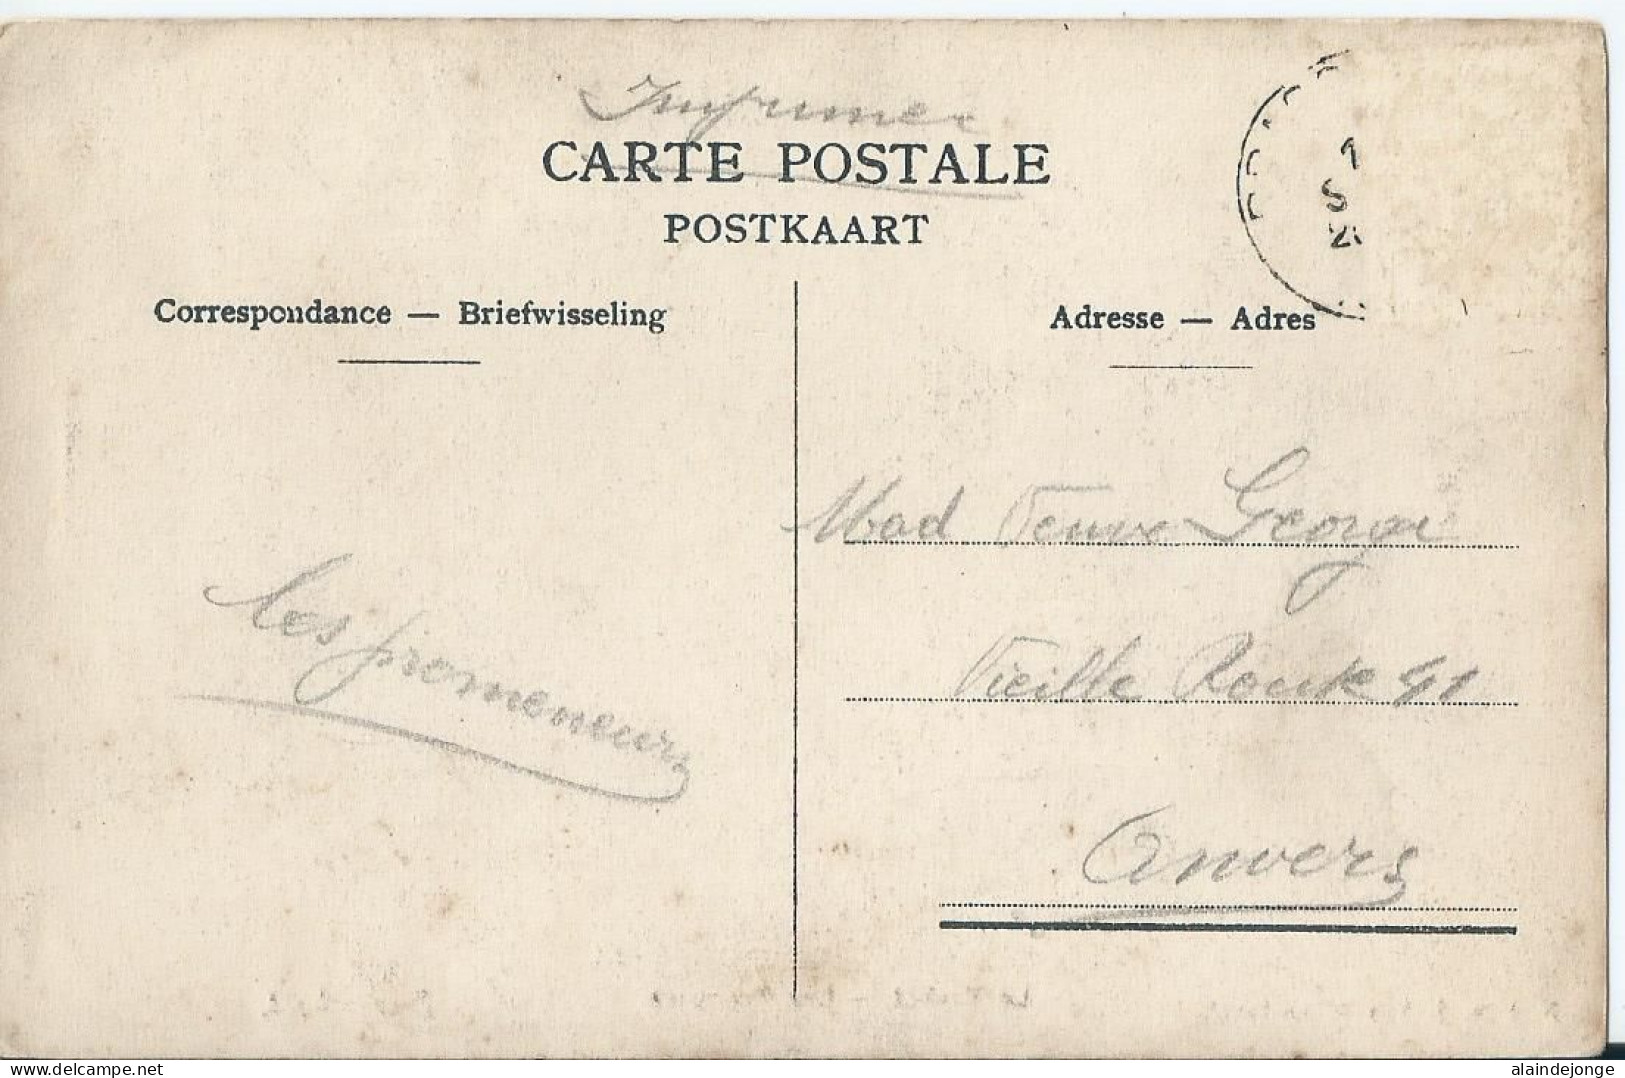 Imprimé
CARTE POSTALE
POSTKAART
Correspondance — Briefwisseling
Adresse — Adres
Mad Veuve George
Vieille Route 41
Anvers
Les promeneurs
delcampe.net
alaindejonge